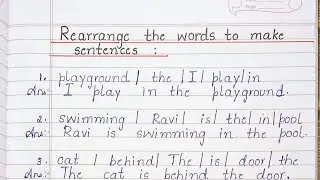 Rearrange the words to make
sentences :
1. playground / the / I / play / in
Ans: I play in the playground.
2. swimming / Ravi / is / the / in / pool
Ans: Ravi is swimming in the pool.
3. cat / behind / The / is / door / the
Ans: The cat is behind the door.